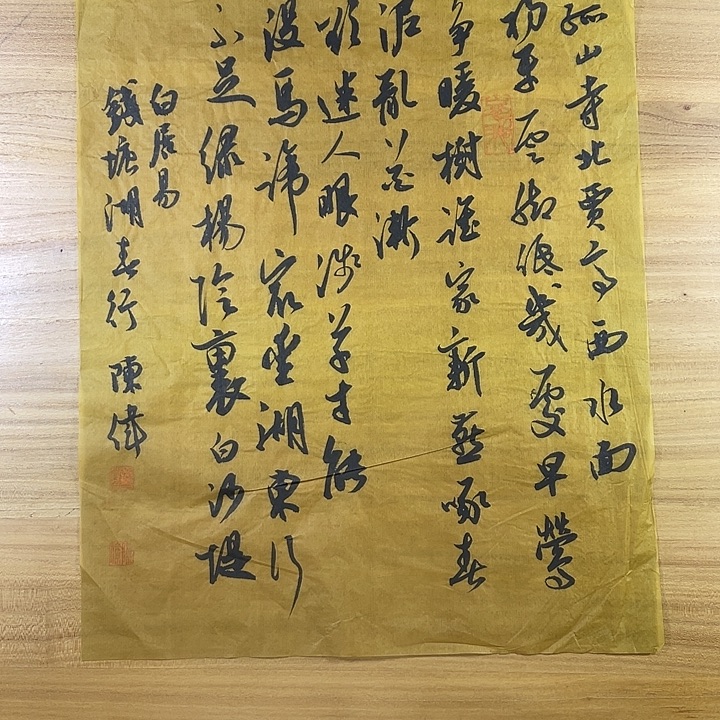 孤山寺北賈亭西水面
初平雲脚低幾處早鶯
爭暖樹誰家新燕啄春
泥亂花漸
欲迷人眼淺草才能
沒馬蹄最愛湖東行
不足綠楊陰裏白沙堤
白居易
錢塘湖春行 陳偉